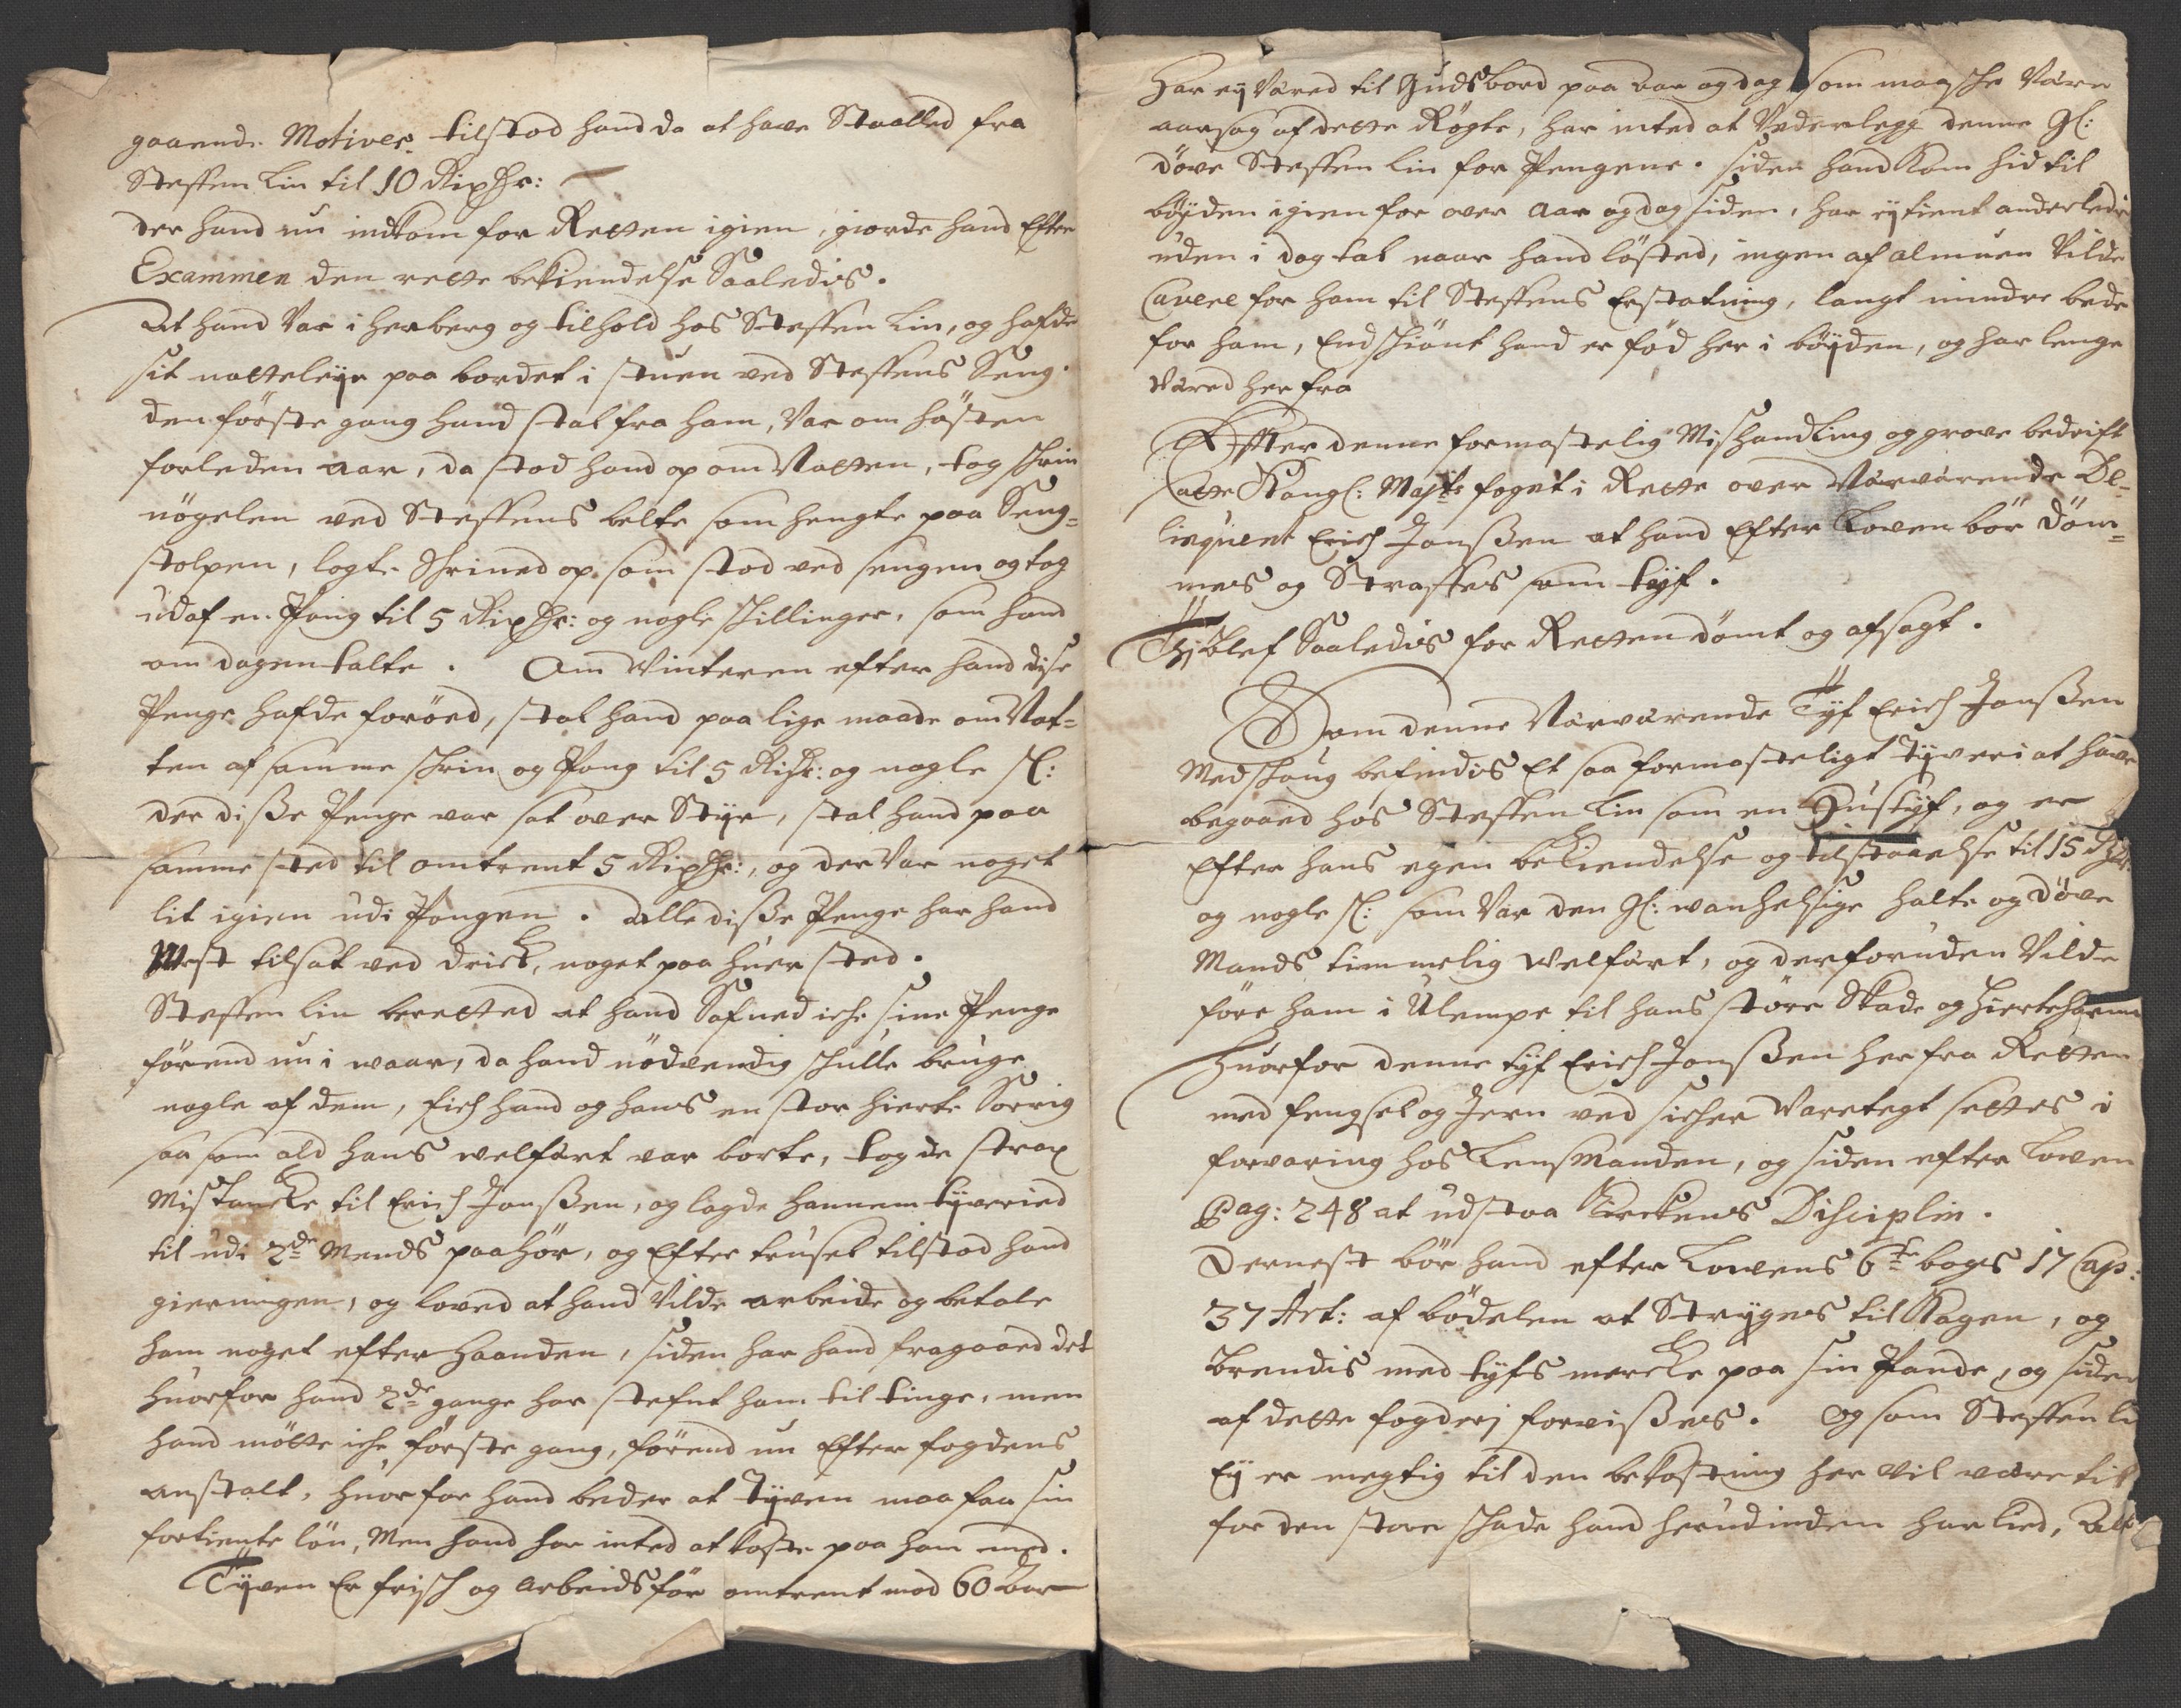 gaaende Motiver. tilstod hand da at have Staalled fra
Steffen Lin til 10 Rixdr:
der hand nu indkom for Retten igien, giorde hand Efter
Exammen den rette bekiendelse Saaledis.
At hand Var i herberg og tilhold hos Steffen Lin, og hafde
sit natteleye paa bordet i stuen ved Steffens Seng.
den första gang hand stal fra ham, Var om hösten
forleden aar, da stod hand op om Natten, tog skrin
nögelen ved Steffens belte som hengte paa Seng=
stolpen, logte Skrined op som stod ved sengen og tog
ud af en Pung til 5 Rixdr: og nogle skillinger, som hand
om dagen talte. Om Vinteren efter hand dise
Penge hafde foröed, stal hand paa lige maade om Nat=
ten af samme skrin og Pung til 5 Rdr: og nogle s:
der disse Penge var sat over Styr, stal hand paa
samme sted til omtrent 5 Rixdr:, og der Var noget
lit igien udi Pungen. Alle disse Penge har hand
Mest tilsat ved drick, noget paa huer sted.
Steffen Lin beretted at hand Safned iche sine Penge
förend nu i waar, da hand nödvendig skulle bruge
nogle af dem, fich hand og hans en stor hierte Sorrig
saasom ald hans welfært var borte, tog de strax
Mistancke til Erich Jonssen, og lagde hannem tyveried
til udi 2de Mends paahör, og Efter trusel tilstod hand
gierningen, og loved at hand Vilde arbeide og betale
ham noget efter haanden, siden har hand fragaaed det
huorfor hand 2de gange har stefnt ham til tinge, men
hand mötte iche förste gang, förend nu Efter fogdens
anstalt, huorfor hand beder at Tyven maa faa sin
fortiente lön, Men hand har inted at koste paa ham med.
Tyven Er frisk og arbeidsför omtrent mod 60 Aar
Har ey Vared til Guds bord paa Aar og dag som maaske Være
aarsag af dette Rögte, har inted at Vederlegge denne gl:
döve Steffen Lin for Pengene. siden hand kom hid til
böyden igien for over Aar og dag siden, har ey tient anderledis
uden i dagtal naar hand lysted, ingen af almuen Vilde
Cavere for ham til Steffens Erstatning, langt mindre bede
for ham, Endskiönt hand er föd her i böyden, og har lenge
Vared her fra
Effter denne formastelig Mishandling og grove bedrift
satte Kongl: Majts foget i Rette over Nærværende De=
linquent Erich Jonssen at hand Efter Loven bör döm=
mes og Straffes som tyf.
Thj blef Saaledis for Retten dömt og afsagt.
Som denne Nærværende Tyf Erich Jonssen
Med skaug befindis Et saa formasteligt tyveri at have
begaaed hos Steffen Lin som en Hustyf, og er
Efter hans egen bekiendelse og tilstaaelse til 15 Rdr:
og nogle s: som Var den gl: wanhelsige halte og döve
Mands timmelig welfært, og derforuden Vilde
före ham i Ulempe til hans störe Skade og hierteharme
Huorfor denne tyf Erich Jonssen her fra Retten
med fengsel og Jern ved sicher Varetegt settes i
forvaring hos Lensmanden, og siden efter Loven
Pag: 248 at udstaa Kirckens Disciplin.
Dernest bör hand efter Lovens 6te bogs 17 Cap:
37 Art: af bödelen at Stryges til Kagen, og
brendis med tyfs mercke paa sin Pande, og siden
af dette fogderj forvisses. Og som Steffen Li
Ey er megtig til den bekostning her vil være til
for den store skade hand herudinden har lied, Alt